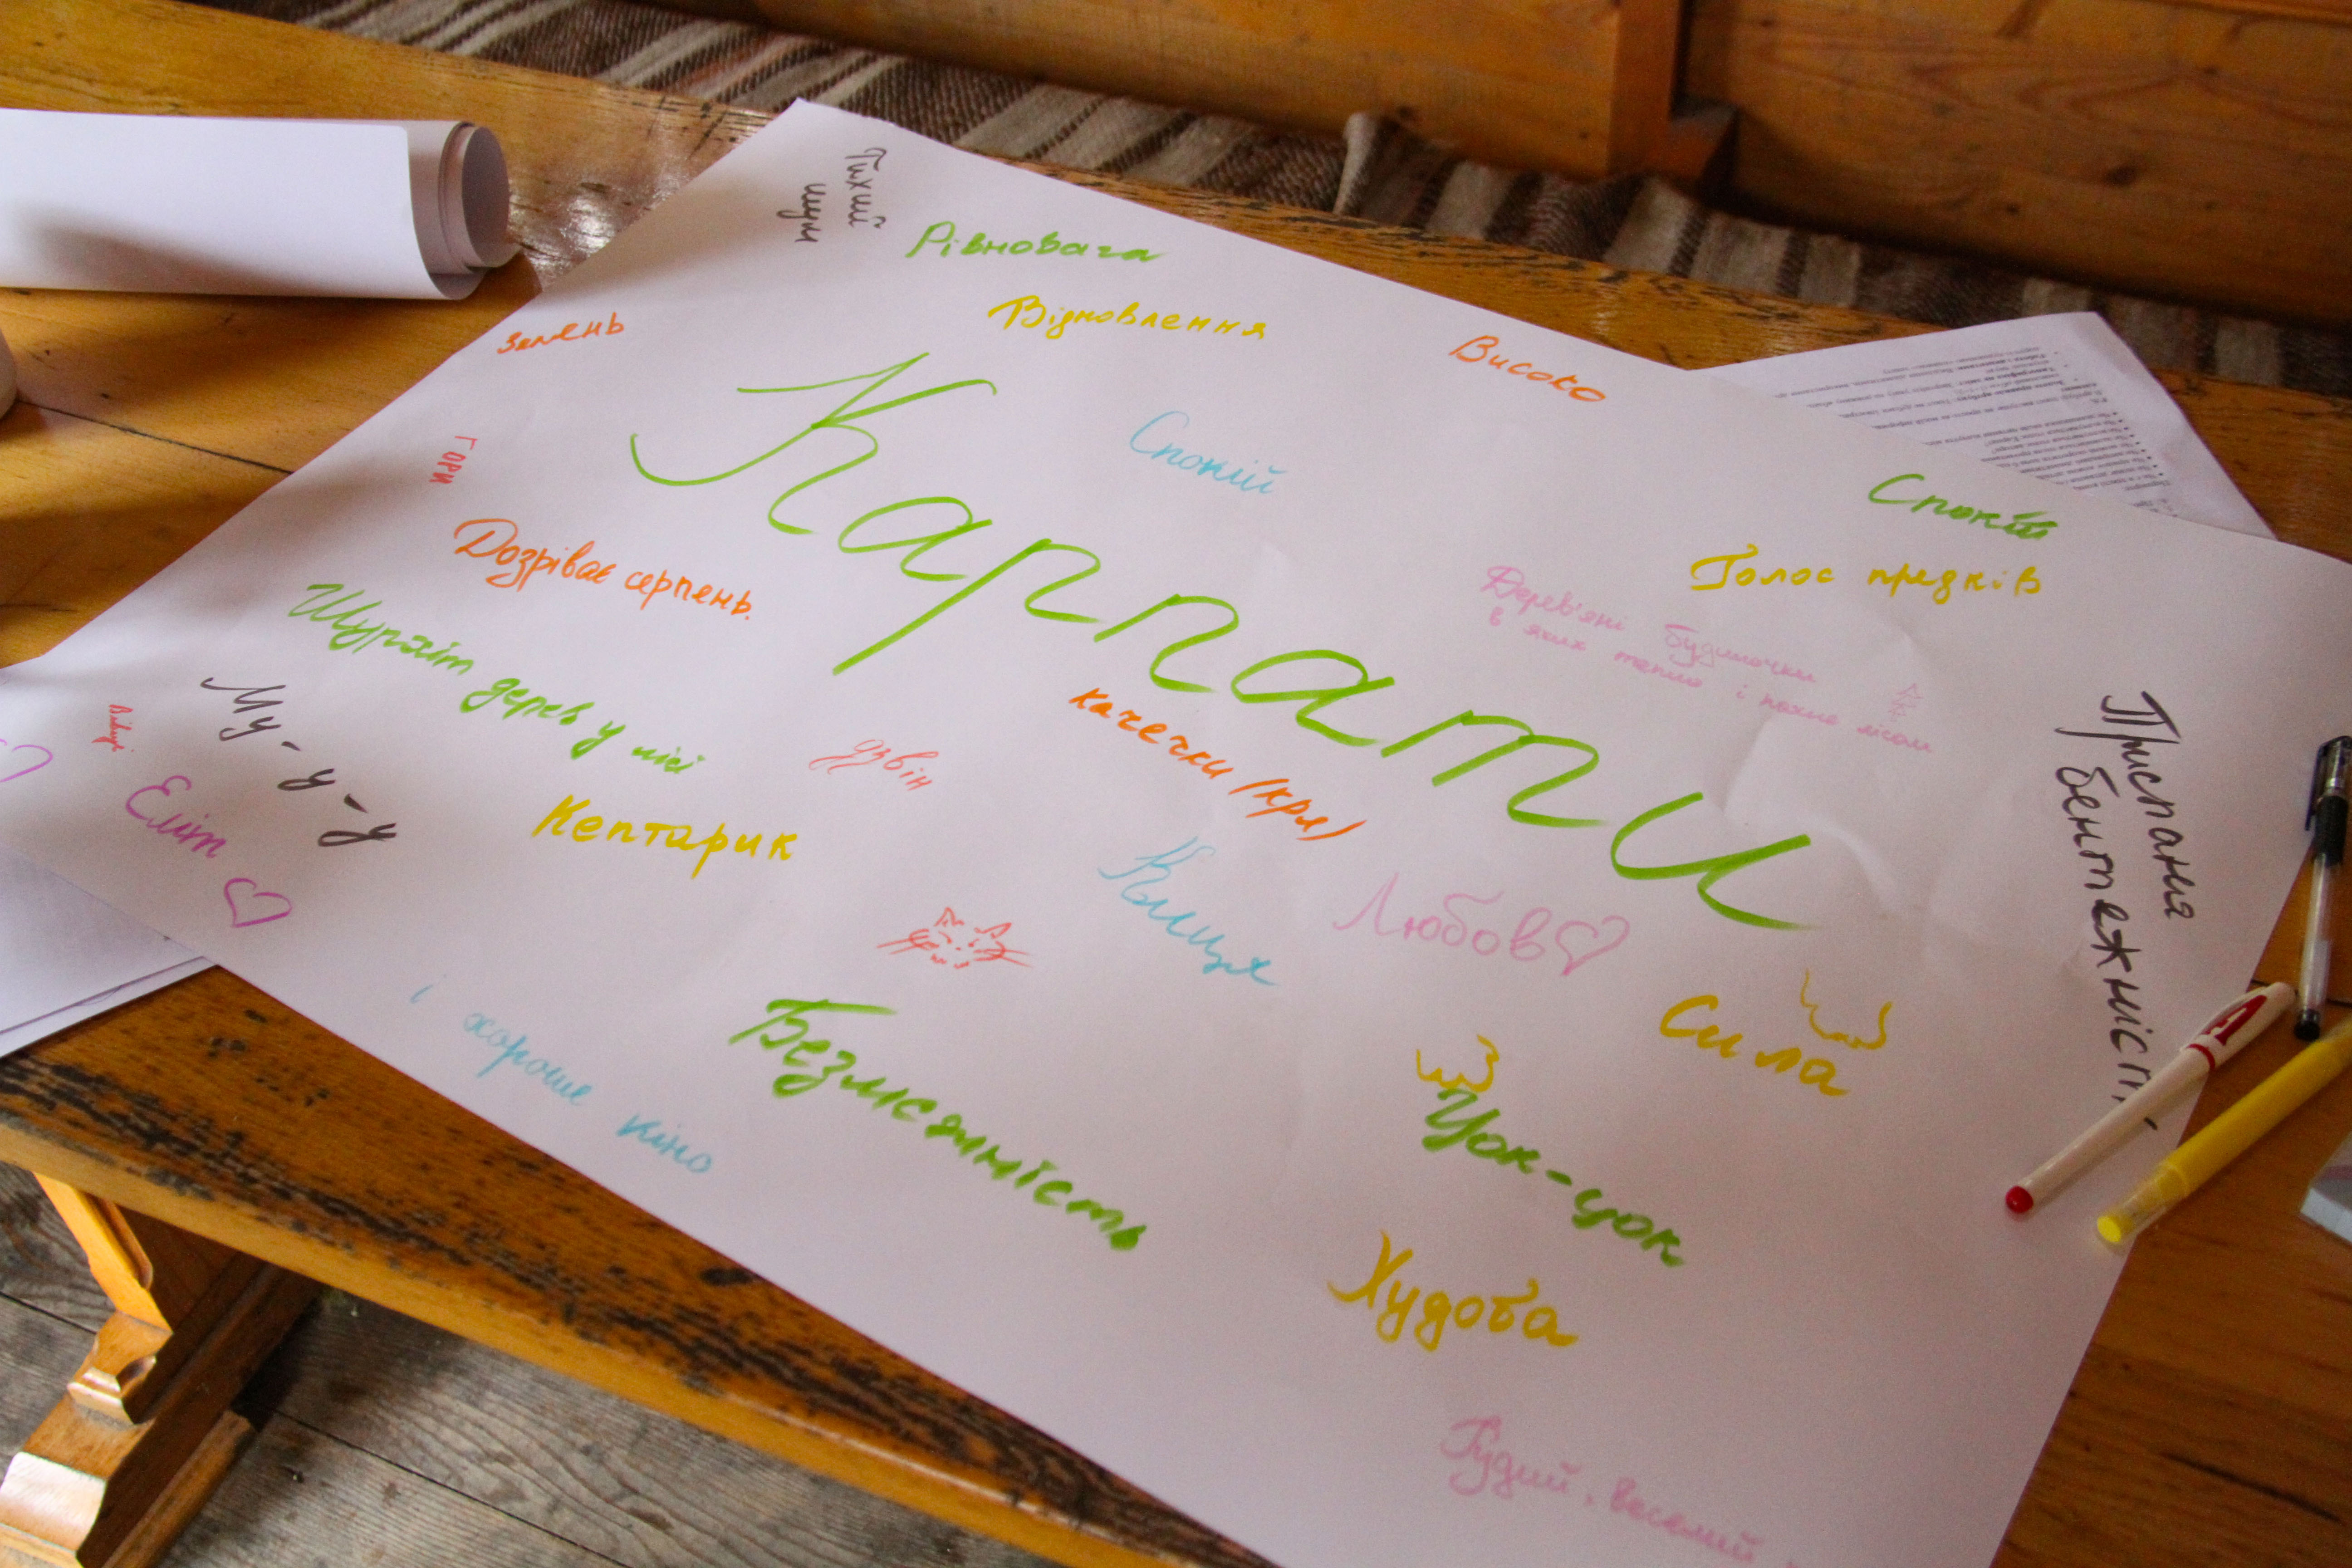 Тихий
шум
Рівновага
Відновлення
зелень
Високо
Карпати
Спокій
гори
Спокій
Голос предків
Дозріває серпень.
Дерев'яні будиночки
в яких тепло і пахне лісом
Шурхіт дерев у лісі
Му-у-у
дзвін
качечки (кря)
Приспана
бентежніст
Еліт
Кептарик
Киця
Любов
Сила
і хороше кіно
Безмисляність
Цок-цок
Худоба
Рудий, веселий